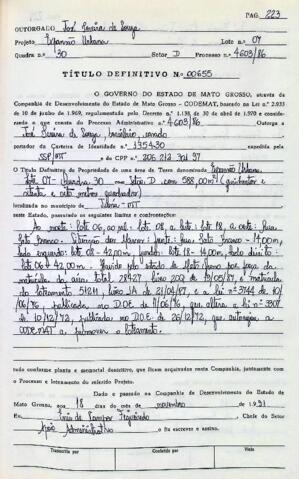 PAG. 223
OUTORGADO José Pereira de Souza
Projeto Expansão Urbana Lote no 07
Quadra n.o 30 Setor D Processo n.o 4603/86
TÍTULO DEFINITIVO N.o 00655
O GOVERNO DO ESTADO DE MATO GROSSO, através da
Companhia de Desenvolvimento do Estado de Mato Grosso - CODEMAT, baseado na Lei n.o 2.933
de 10 de junho de 1.969, regulamentada pelo Decreto n.o 1.138 de 30 de abril de 1.970 e considerando
o que consta do Processo Administrativo n.o 4603/86. Outorga a
José Pereira de Souza, brasileiro, casado
portador da Carteira de Identidade n.o 135430 expedida pela
SSP/MT e do CPF n.o 206 212 301 97
Título Definitivo de Propriedade de uma área de Terra denominada Expansão Urbana,
Lote 07 - Quadra 30 Setor D com 588,00m² (quinhentos e
oitenta e oito metros quadrados)
localizada no município de
neste Estado, passando os seguintes limites e confrontações:
Ao norte: lote 06, ao sul: lote 08, a leste: lote 18, a oeste: Rua
Pato Branco. frente: Rua Pato Branco - 14,00m,
lado esquerdo: lote 08 - 42,00m fundo: lote 18 - 14,00m, lado direito:
lote 06 - 42,00m. por força da
matrícula da área total: 28427, livro 202 de
do loteamento 51211, livro 2A de 21/04/87, e a lei nº 3744 de 10/
06/76, publicada no D.O.E. de 11/06/76, que altera a lei nº 3307
de 10/12/72, publicada no D.O.E. de 26/12/72, que autoriza a
CODEMAT a promover o loteamento.
tudo conforme planta e memorial descritivo, que ficam arquivados nesta Companhia, juntamente com
o Processo e loteamento do referido Projeto.
Dado e passado na Companhia de Desenvolvimento do Estado de
Mato Grosso, aos 18 dias do mês de novembro de 1.991
Eu Figueiredo, Chefe do Setor
Apoio Administrativo o fiz escrever e assino.
Transcrita por Conferida por Visto